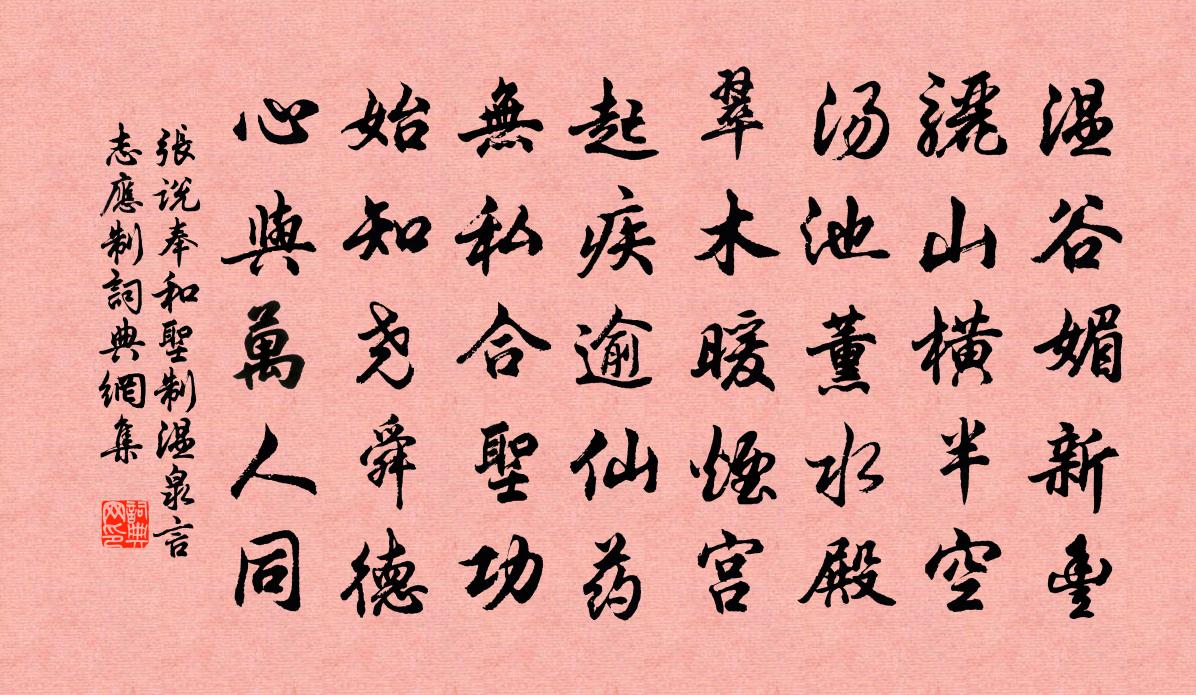 温谷媚新豊
驪山橫半空
湯池薰水殿
翠木暖煙宮
起疾逾仙药
無私合聖功
始知尧舜德
心與萬人同
張説奉和聖制温泉言
志應制詞典網集
詞典网印